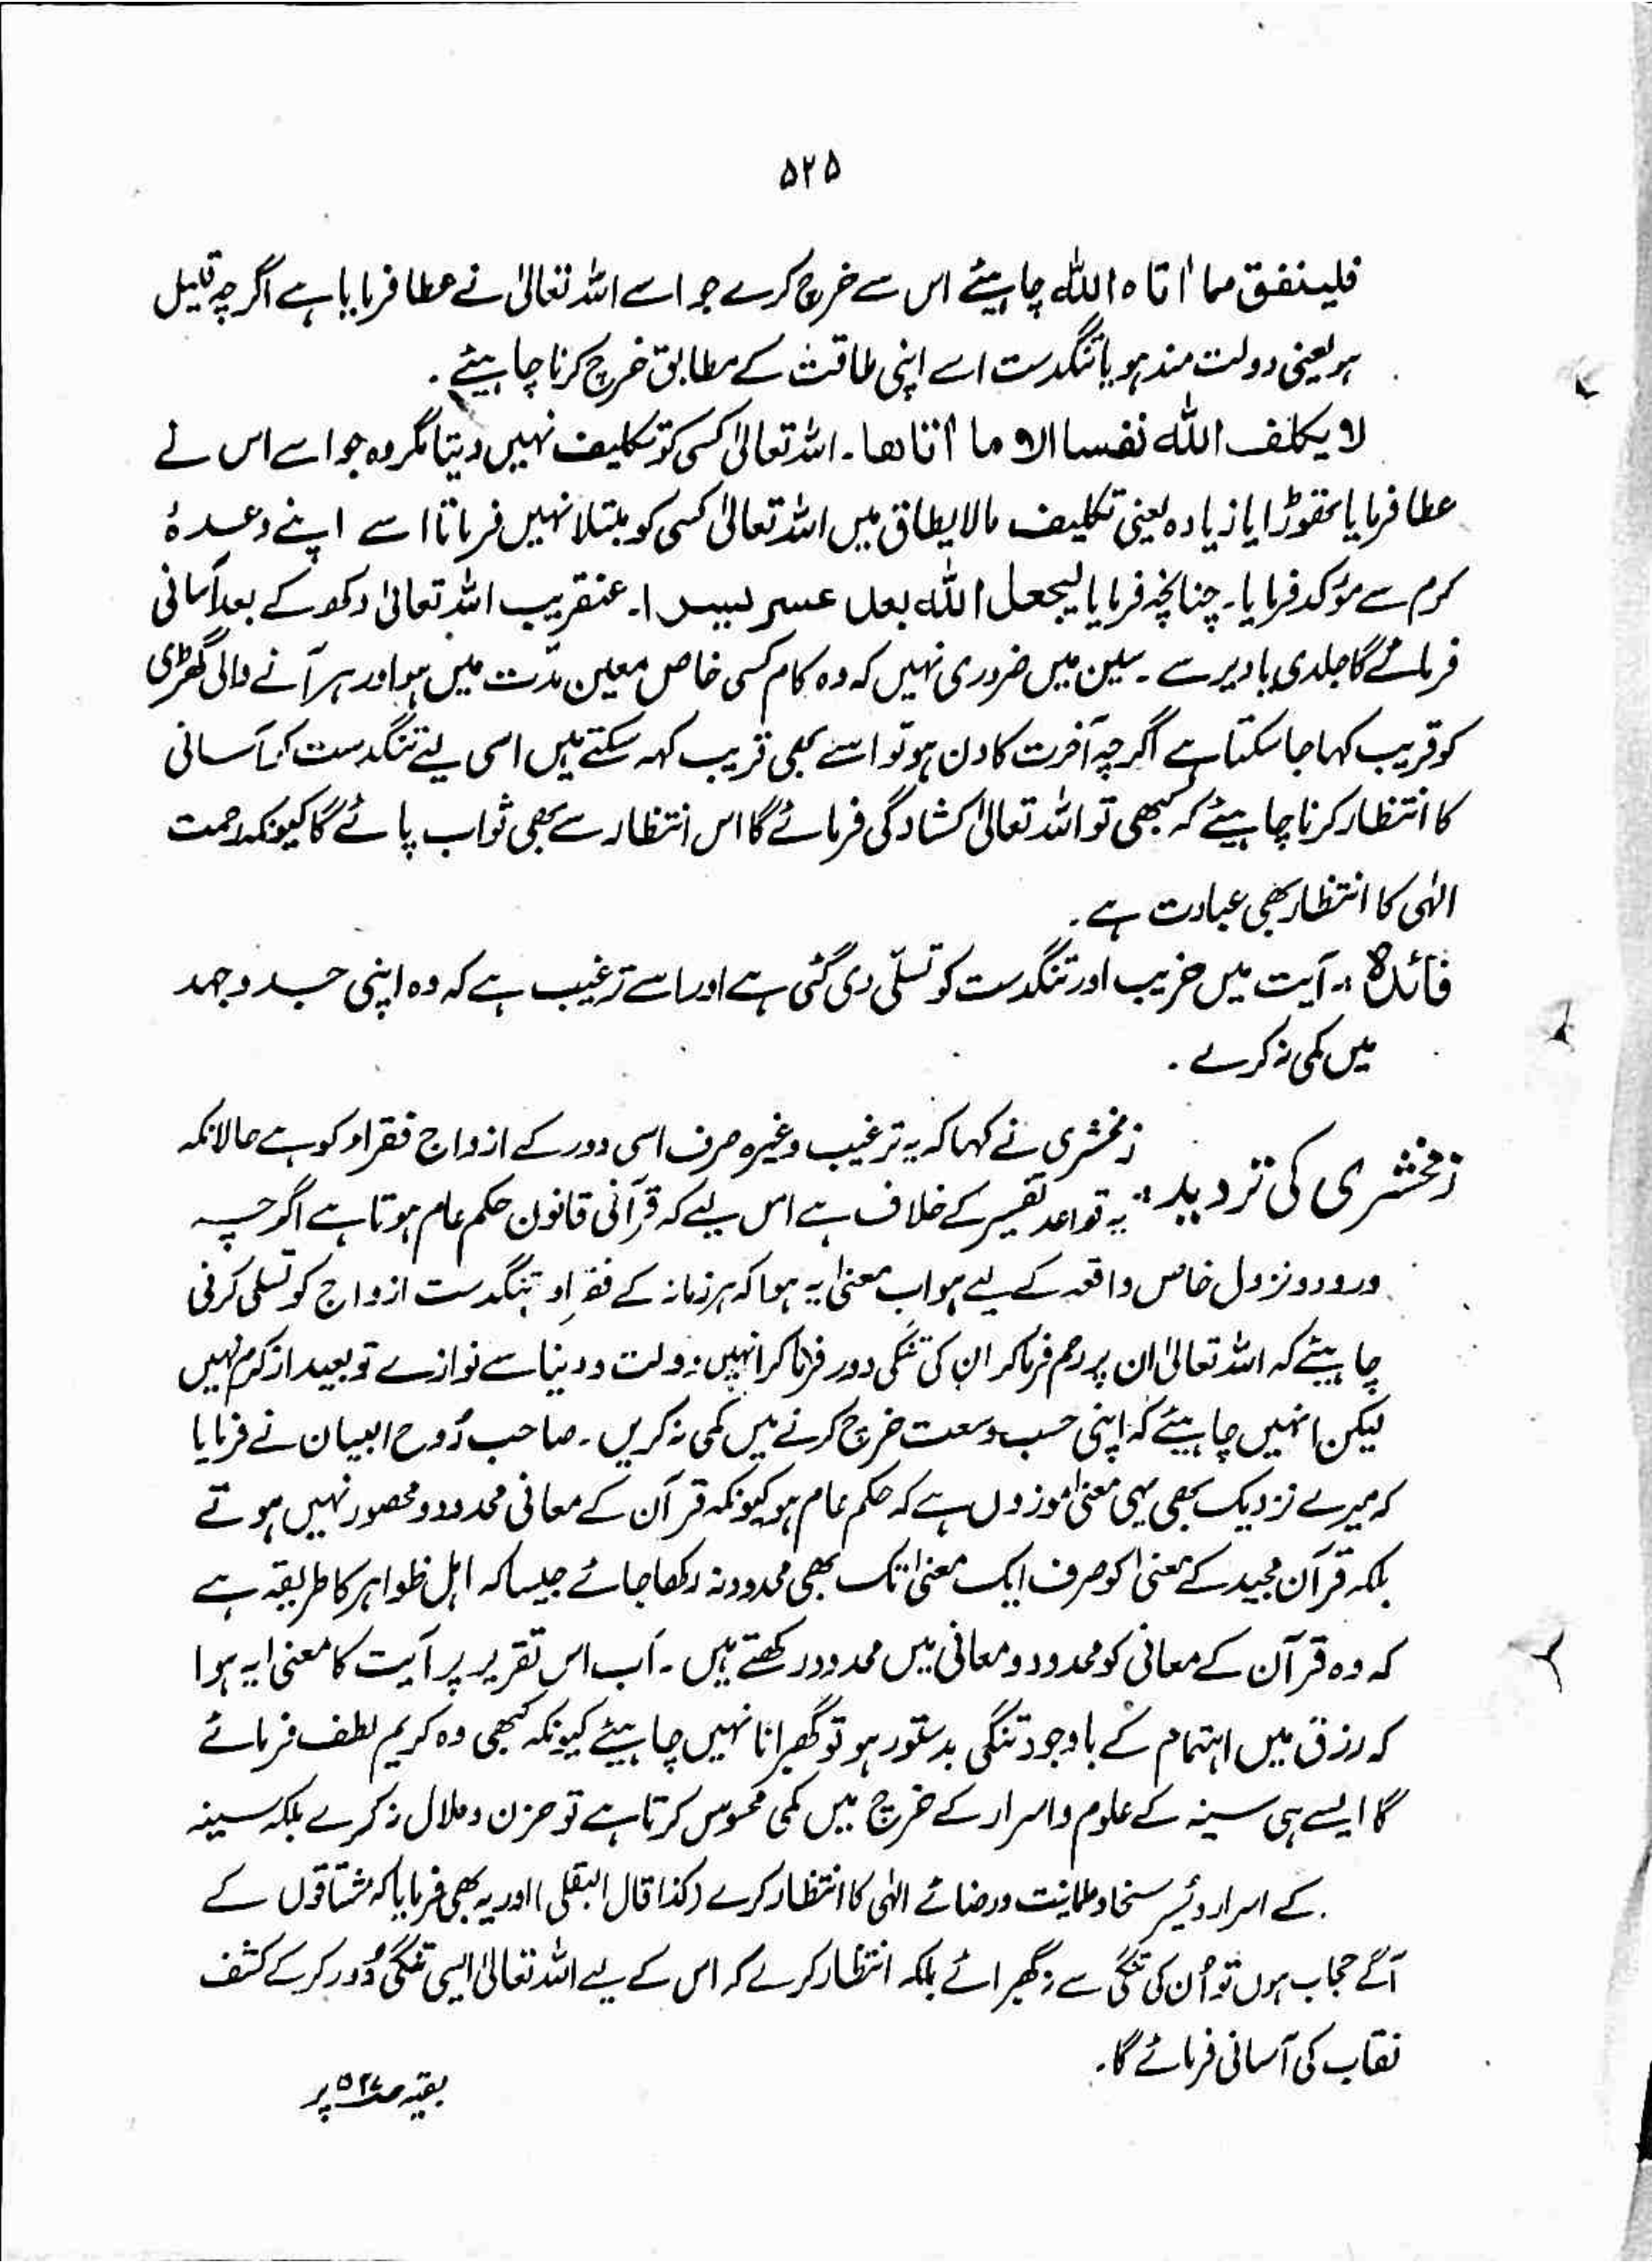 ۵۲۵
فلینفق مما اٰتاہ اللہ چاہیئے اس سے خرچ کرے جو اسے اللہ تعالیٰ نے عطا فرمایا ہے اگرچہ قلیل
ہو یعنی دولت مند ہو یا تنگدست اسے اپنی طاقت کے مطابق خرچ کرنا چاہیئے۔
لا یکلف اللہ نفسا الا ما اٰتاھا۔ اللہ تعالیٰ کسی کو تکلیف نہیں دیتا مگر وہ جو اسے اس نے
عطا فرمایا تھوڑا یا زیادہ یعنی تکلیف مالا یطاق میں اللہ تعالیٰ کسی کو مبتلا نہیں فرماتا اسے اپنے وعدۂ
کرم سے موکد فرمایا۔ چنانچہ فرمایا لیجعل اللہ بعد عسر یسرا۔ عنقریب اللہ تعالیٰ دکھ کے بعد آسانی
فرمائے گا جلدی یا دیر سے۔ سین میں ضروری نہیں کہ وہ کام کسی خاص معین مدّت میں ہو اور ہر آنے والی گھڑی
کو قریب کہا جا سکتا ہے اگرچہ آخرت کا دن ہو تو اسے بھی قریب کہہ سکتے ہیں اسی لیے تنگدست کو آسانی
کا انتظار کرنا چاہیئے کہ کبھی تو اللہ تعالیٰ کشادگی فرمائے گا اس انتظار سے بھی ثواب پائے گا کیونکہ رحمت
الٰہی کا انتظار بھی عبادت ہے۔
فائدہ :۔ آیت میں غریب اور تنگدست کو تسلّی دی گئی ہے اور اسے ترغیب ہے کہ وہ اپنی جدوجہد
میں کمی نہ کرے۔
زمخشری کی تردید :۔ زمخشری نے کہا کہ یہ ترغیب وغیرہ صرف اسی دور کے ازواج فقراء کو ہے حالانکہ
یہ قواعد تفسیر کے خلاف ہے اس لیے کہ قرآنی قانون حکم عام ہوتا ہے اگرچہ
ورود و نزول خاص واقعہ کے لیے ہو اب معنیٰ یہ ہوا کہ ہر زمانہ کے فقراء و تنگدست ازواج کو تسلی کرنی
چاہیئے کہ اللہ تعالیٰ ان پر رحم فرما کر ان کی تنگی دور فرما کر انہیں دولت و دنیا سے نوازے تو بعید از کرم نہیں
لیکن انہیں چاہیئے کہ اپنی حسب وسعت خرچ کرنے میں کمی نہ کریں۔ صاحب رُوح البیان نے فرمایا
کہ میرے نزدیک بھی یہی معنیٰ موزوں ہے کہ حکم عام ہو کیونکہ قرآن کے معانی محدود و محصور نہیں ہوتے
بلکہ قرآن مجید کے معنیٰ کو صرف ایک معنیٰ تک بھی محدود نہ رکھا جائے جیسا کہ اہل ظواہر کا طریقہ ہے
کہ وہ قرآن کے معانی کو محدود و معانی میں محدود رکھتے ہیں۔ اَب اس تقریر پر آیت کا معنیٰ یہ ہوا
کہ رزق میں اہتمام کے باوجود تنگی بدستور ہو تو گھبرانا نہیں چاہیئے کیونکہ کبھی وہ کریم لطف فرمائے
گا ایسے ہی سینہ کے علوم و اسرار کے خرچ میں کمی محسوس کرتا ہے تو حزن و ملال نہ کرے بلکہ سینہ
کے اسرار و سخا و طمانیت و رضائے الٰہی کا انتظار کرے (کذا قال البقلی) اور یہ بھی فرمایا کہ مشتاقوں کے
آگے حجاب ہوں تو اُن کی تنگی سے نہ گھبرائے بلکہ انتظار کرے کہ اس کے لیے اللہ تعالیٰ ایسی تنگی دُور کر کے کشف
نقاب کی آسانی فرمائے گا۔
بقیہ صـ ۵۲۷ پر